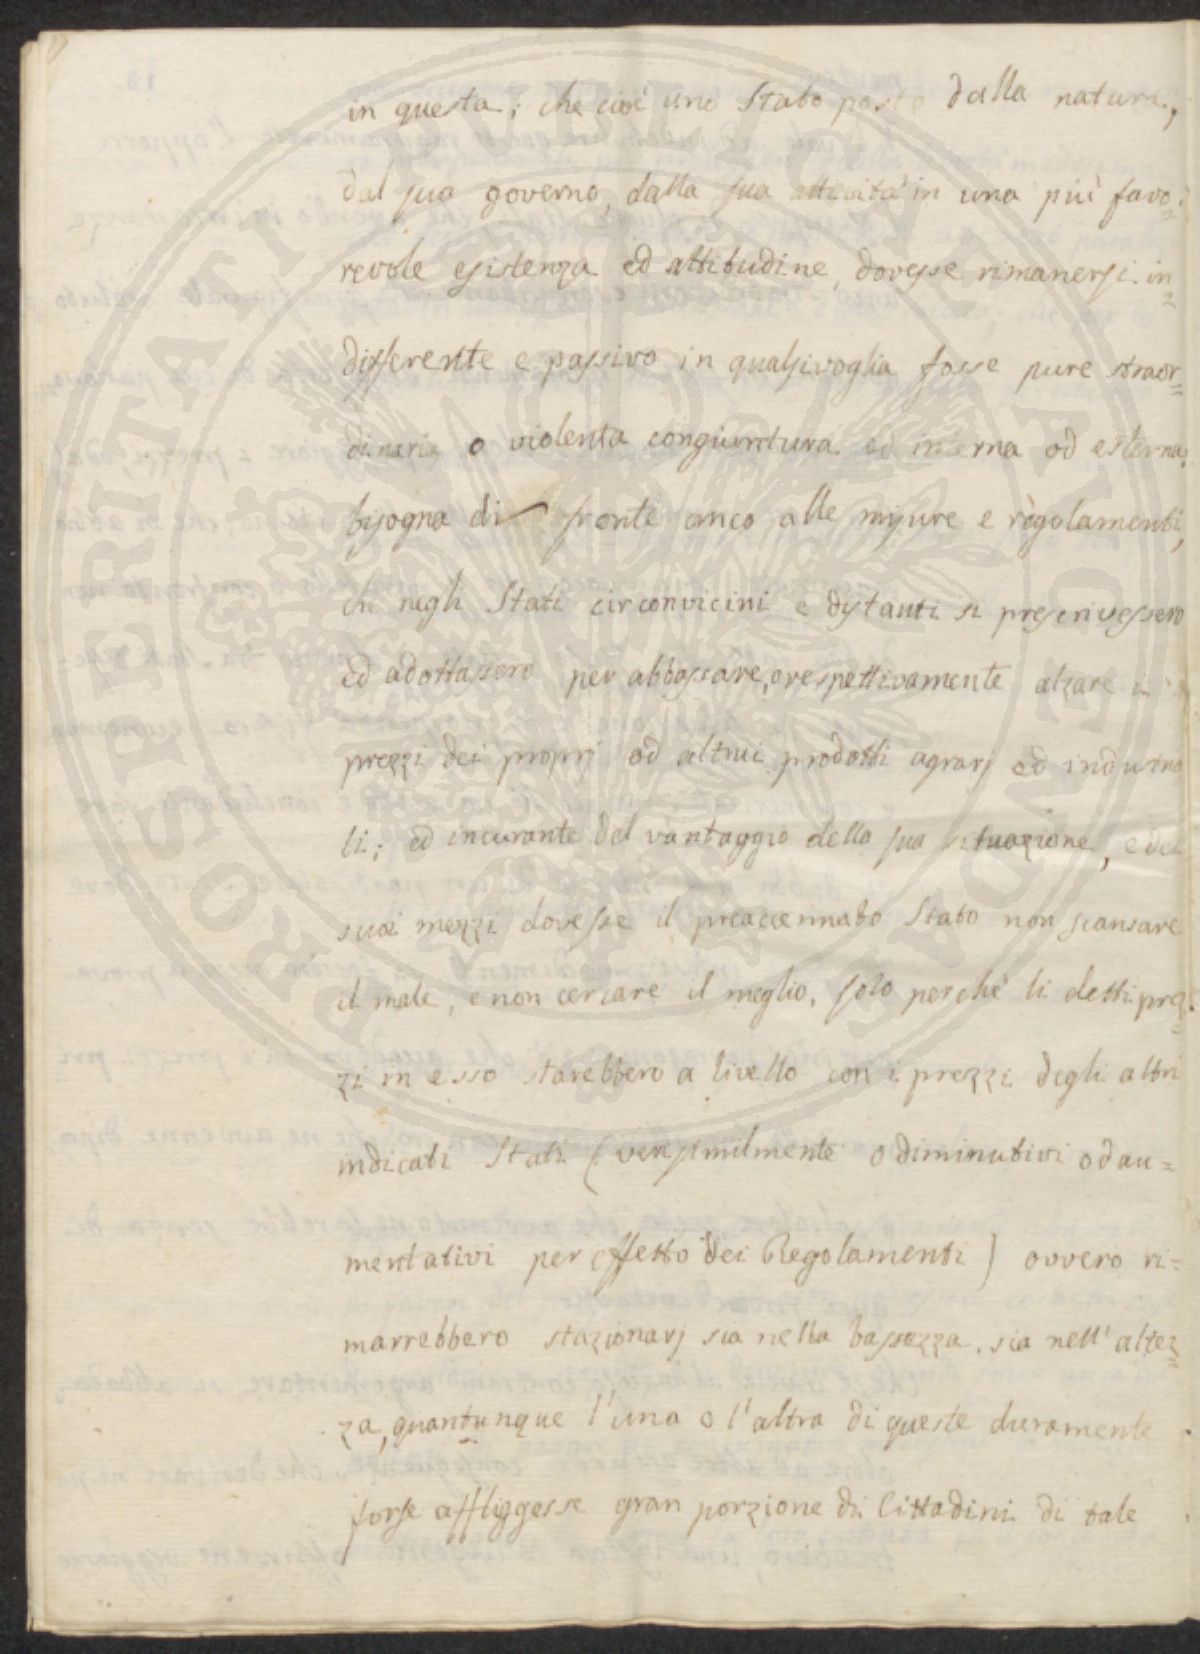 in questa; che cioè uno Stato posto dalla natura,
dal suo governo, dalla sua attività in una più favo=
revole esistenza ed attitudine, dovesse rimanersi in=
differente e passivo in qualsivoglia fosse pure straor=
dinaria o violenta congiuntura ed interna od esterna;
bisogna di fronte anco alle misure e regolamenti,
che negli Stati circonvicini e distanti si prescrivessero
ed adottassero per abbassare, o respettivamente alzare i
prezzi dei proprj od altrui prodotti agrarj ed industria
li; ed incurante del vantaggio della sua situazione, e dei
suoi mezzi dovesse il preaccennato Stato non scansare
il male, e non cercare il meglio, solo perchè li detti prez=
zi in esso starebbero a livello con i prezzi degli altri
indicati Stati (verisimilmente o diminutivi od au=
mentativi per effetto dei Regolamenti) ovvero ri=
marrebbero stazionarj sia nella bassezza, sia nell'altez=
za, quantunque l'una o l'altra di queste duramente
forse affliggesse gran porzione di Cittadini di tale
PROSPERITATI PUBLICAE AUGENDAE